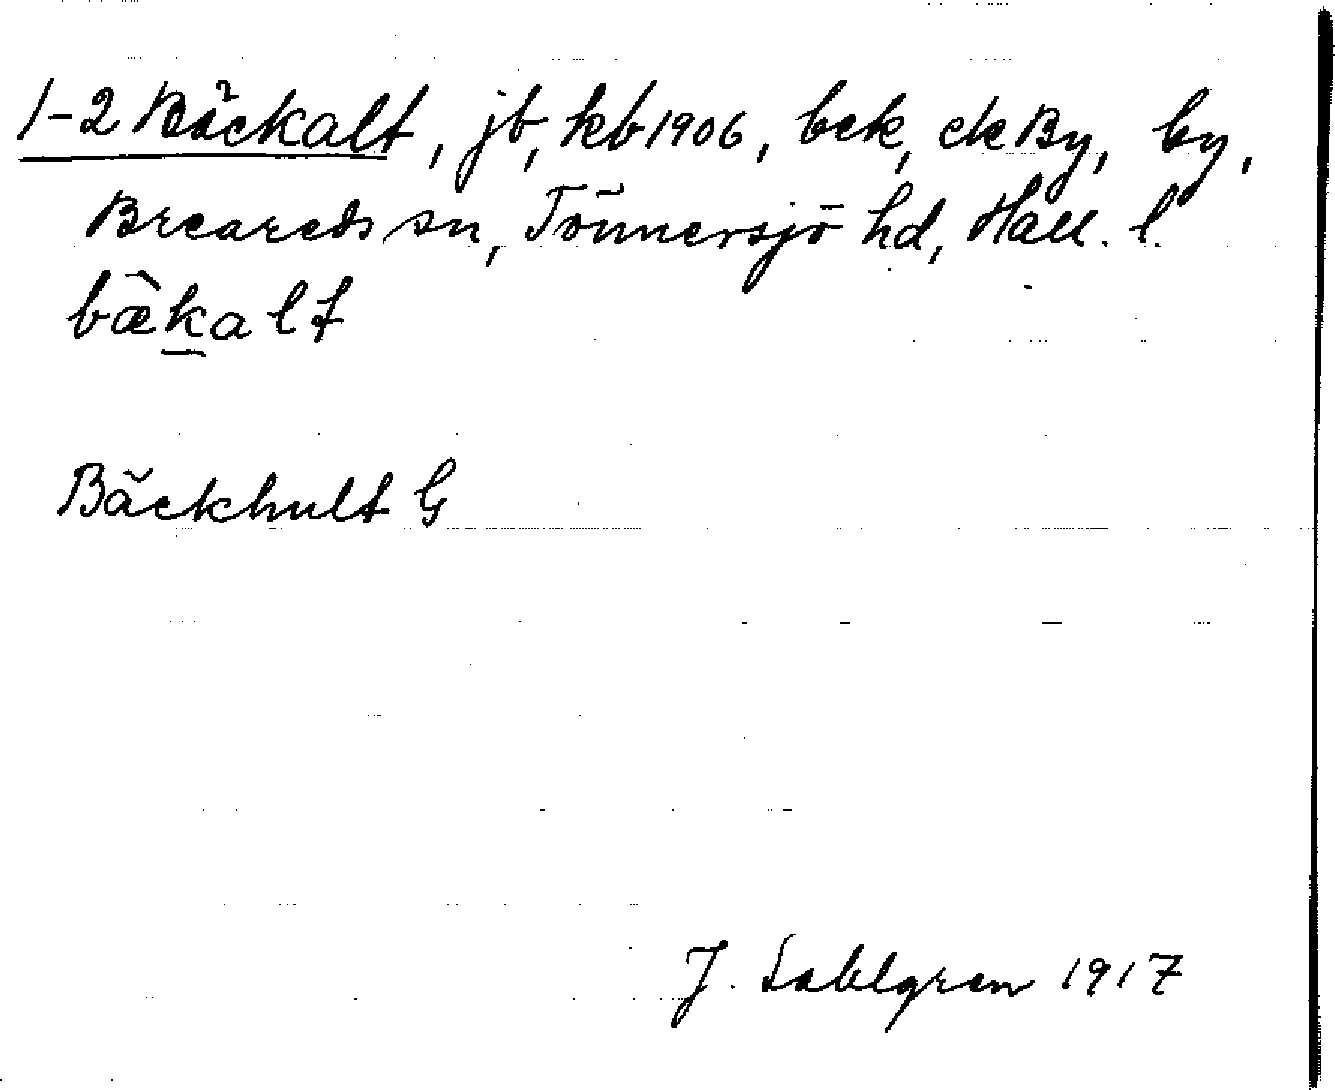 1-2 Bäckalt, jb, kb 1906, bek, ek By, by,
Breareds sn, Tönnersjö hd, Hall. l.
bæ̂kalt
Bäckhult G
J. Sahlgren 1917